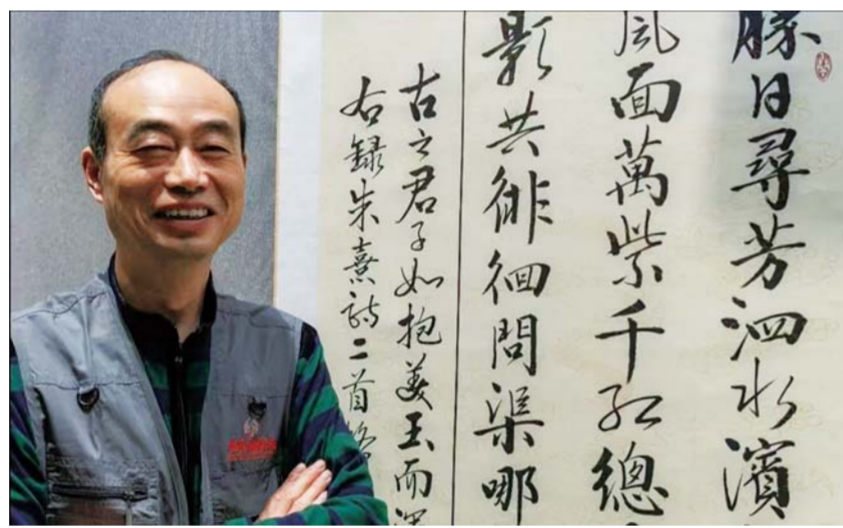 勝日尋芳泗水濱
風面萬紫千紅總
影共徘徊問渠哪
古之君子如抱美玉而深
右録朱熹詩二首